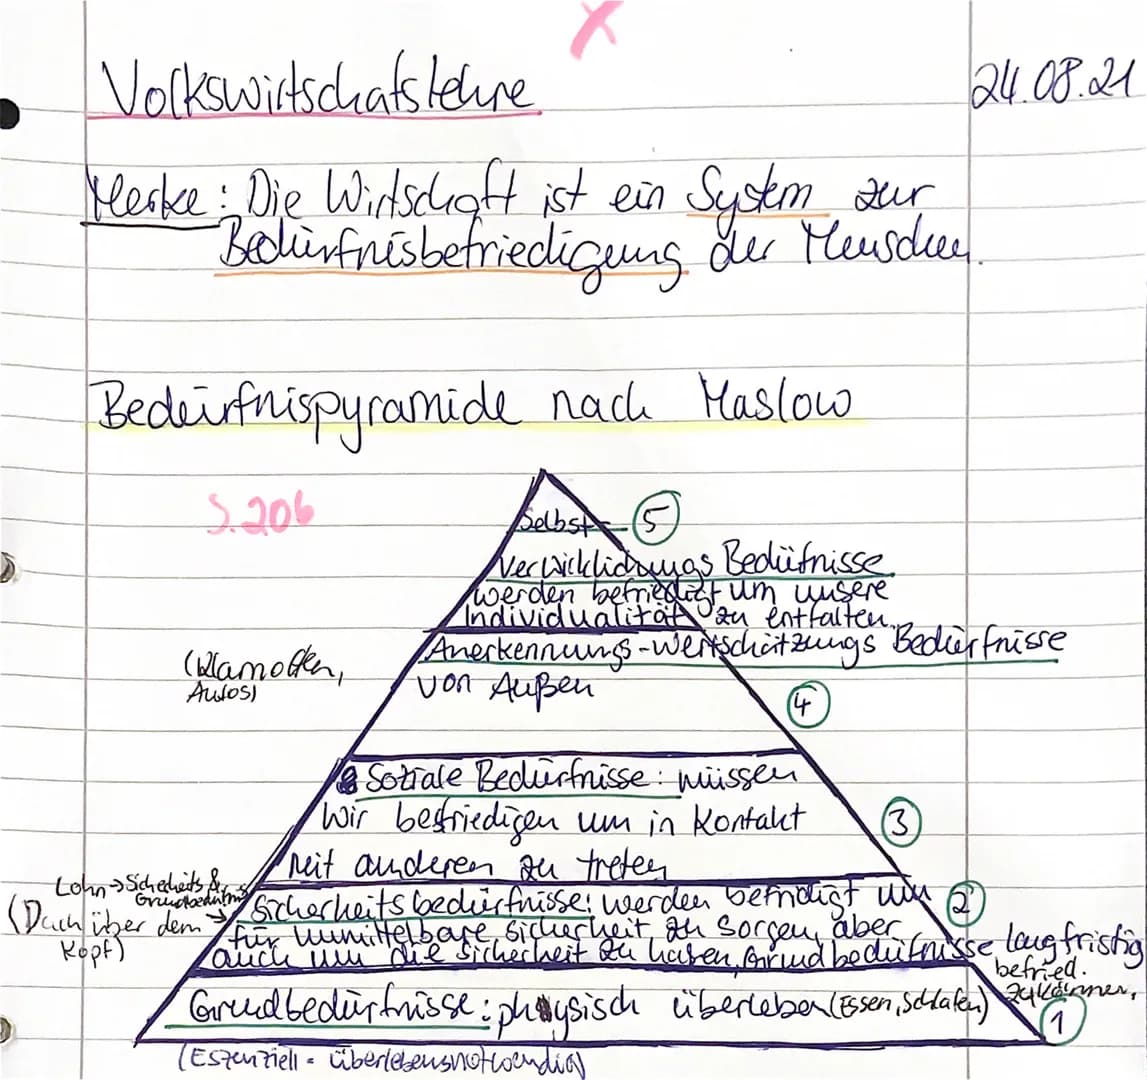 Volkswirtschafslehre
24.08.21
Merke: Die Wirtschaft ist ein System zur
Bedürfnisbefriedigung der Menschen.
Bedürfnispyramide nach Maslow
S. 206
Selbst- 5
Verwicklichungs Bedüfnisse
werden befriedigt um unsere
Individualität zu entfalten.
Anerkennungs-Wertschätzungs Bedürfnisse
von Außen
(Klamotten,
Autos)
4
Soziale Bedürfnisse: müssen
wir befriedigen um in Kontakt
mit anderen zu treten
3
Lohn→Sicherheits &
Grundbedürfnis
(Dach über dem
Kopf)
Sicherheitsbedürfnisse: werden befridigt um 2
für unmittelbare Sicherheit zu sorgen, aber
auch um die Sicherheit zu haben, Grundbedüfnisse langfristig
befried.
zu können.
Grundbedürfnisse: physisch überleben (Essen, Schlafen)
1
(Eszenziell = überlebensnotwendig)